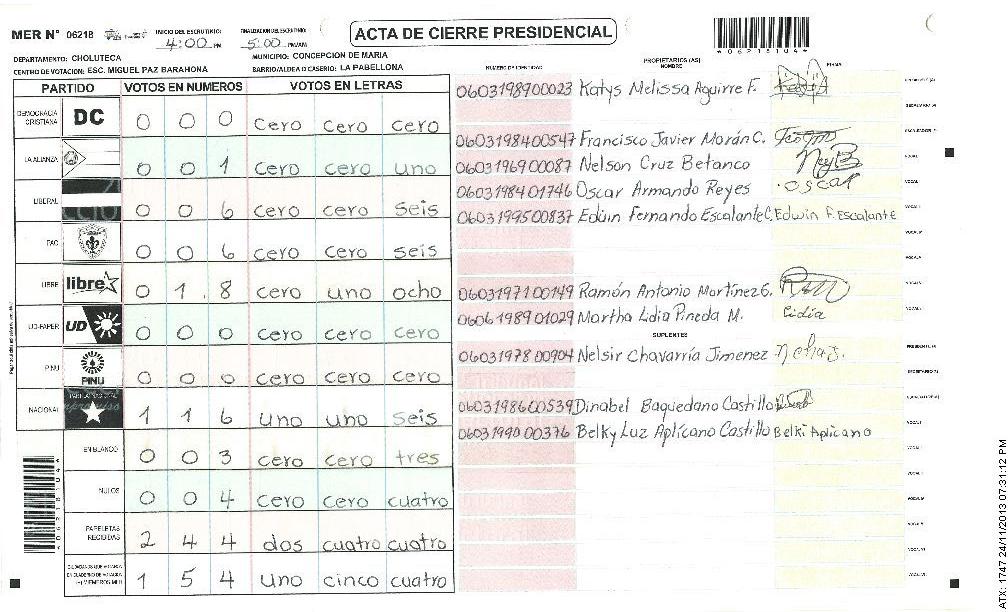 MER N° 06218
INICIO DEL ESCRUTINIO: 4:00 PM
FINALIZACION DEL ESCRUTINIO: 5:00 PM/AM
ACTA DE CIERRE PRESIDENCIAL
4062181044
DEPARTAMENTO: CHOLUTECA
MUNICIPIO: CONCEPCION DE MARIA
CENTRO DE VOTACION: ESC. MIGUEL PAZ BARAHONA
BARRIO/ALDEA O CASERIO: LA PABELLONA
PARTIDO VOTOS EN NUMEROS VOTOS EN LETRAS
DEMOCRACIA CRISTIANA DC 0 0 0 cero cero cero
LA ALIANZA 0 0 1 cero cero uno
LIBERAL 0 0 6 cero cero seis
PAC 0 0 6 cero cero seis
LIBRE libre 0 1.8 cero uno ocho
UD-FAPER UD 0 0 0 cero cero cero
PINU PINU 0 0 0 cero cero cero
NACIONAL 1 1 6 uno uno seis
EN BLANCO 0 0 3 cero cero tres
NULOS 0 0 4 cero cero cuatro
PAPELETAS RECIBIDAS 2 4 4 dos cuatro cuatro
1 5 4 uno cinco cuatro
NUMERO DE IDENTIDAD PROPIETARIOS (AS) NOMBRE FIRMA
0603198900023 Katys Melissa Aguirre F.
0603198400547 Francisco Javier Morán C.
0603196900087 Nelson Cruz Betanco
0603198401746 Oscar Armando Reyes .oscar
0603199500837 Edwin Fernando Escalante C. Edwin F. Escalante
0603197100149 Ramón Antonio Martínez G.
0606198901029 Martha Lidia Pineda M. Lidia
SUPLENTES
0603197800904 Nelsir Chavarría Jimenez
0603198600539 Dinabel Baquedano Castillo
0603199000376 Belky Luz Aplícano Castillo Belki Aplicano
4062181044
ATX: 1747 24/11/2013 07:31:12 PM